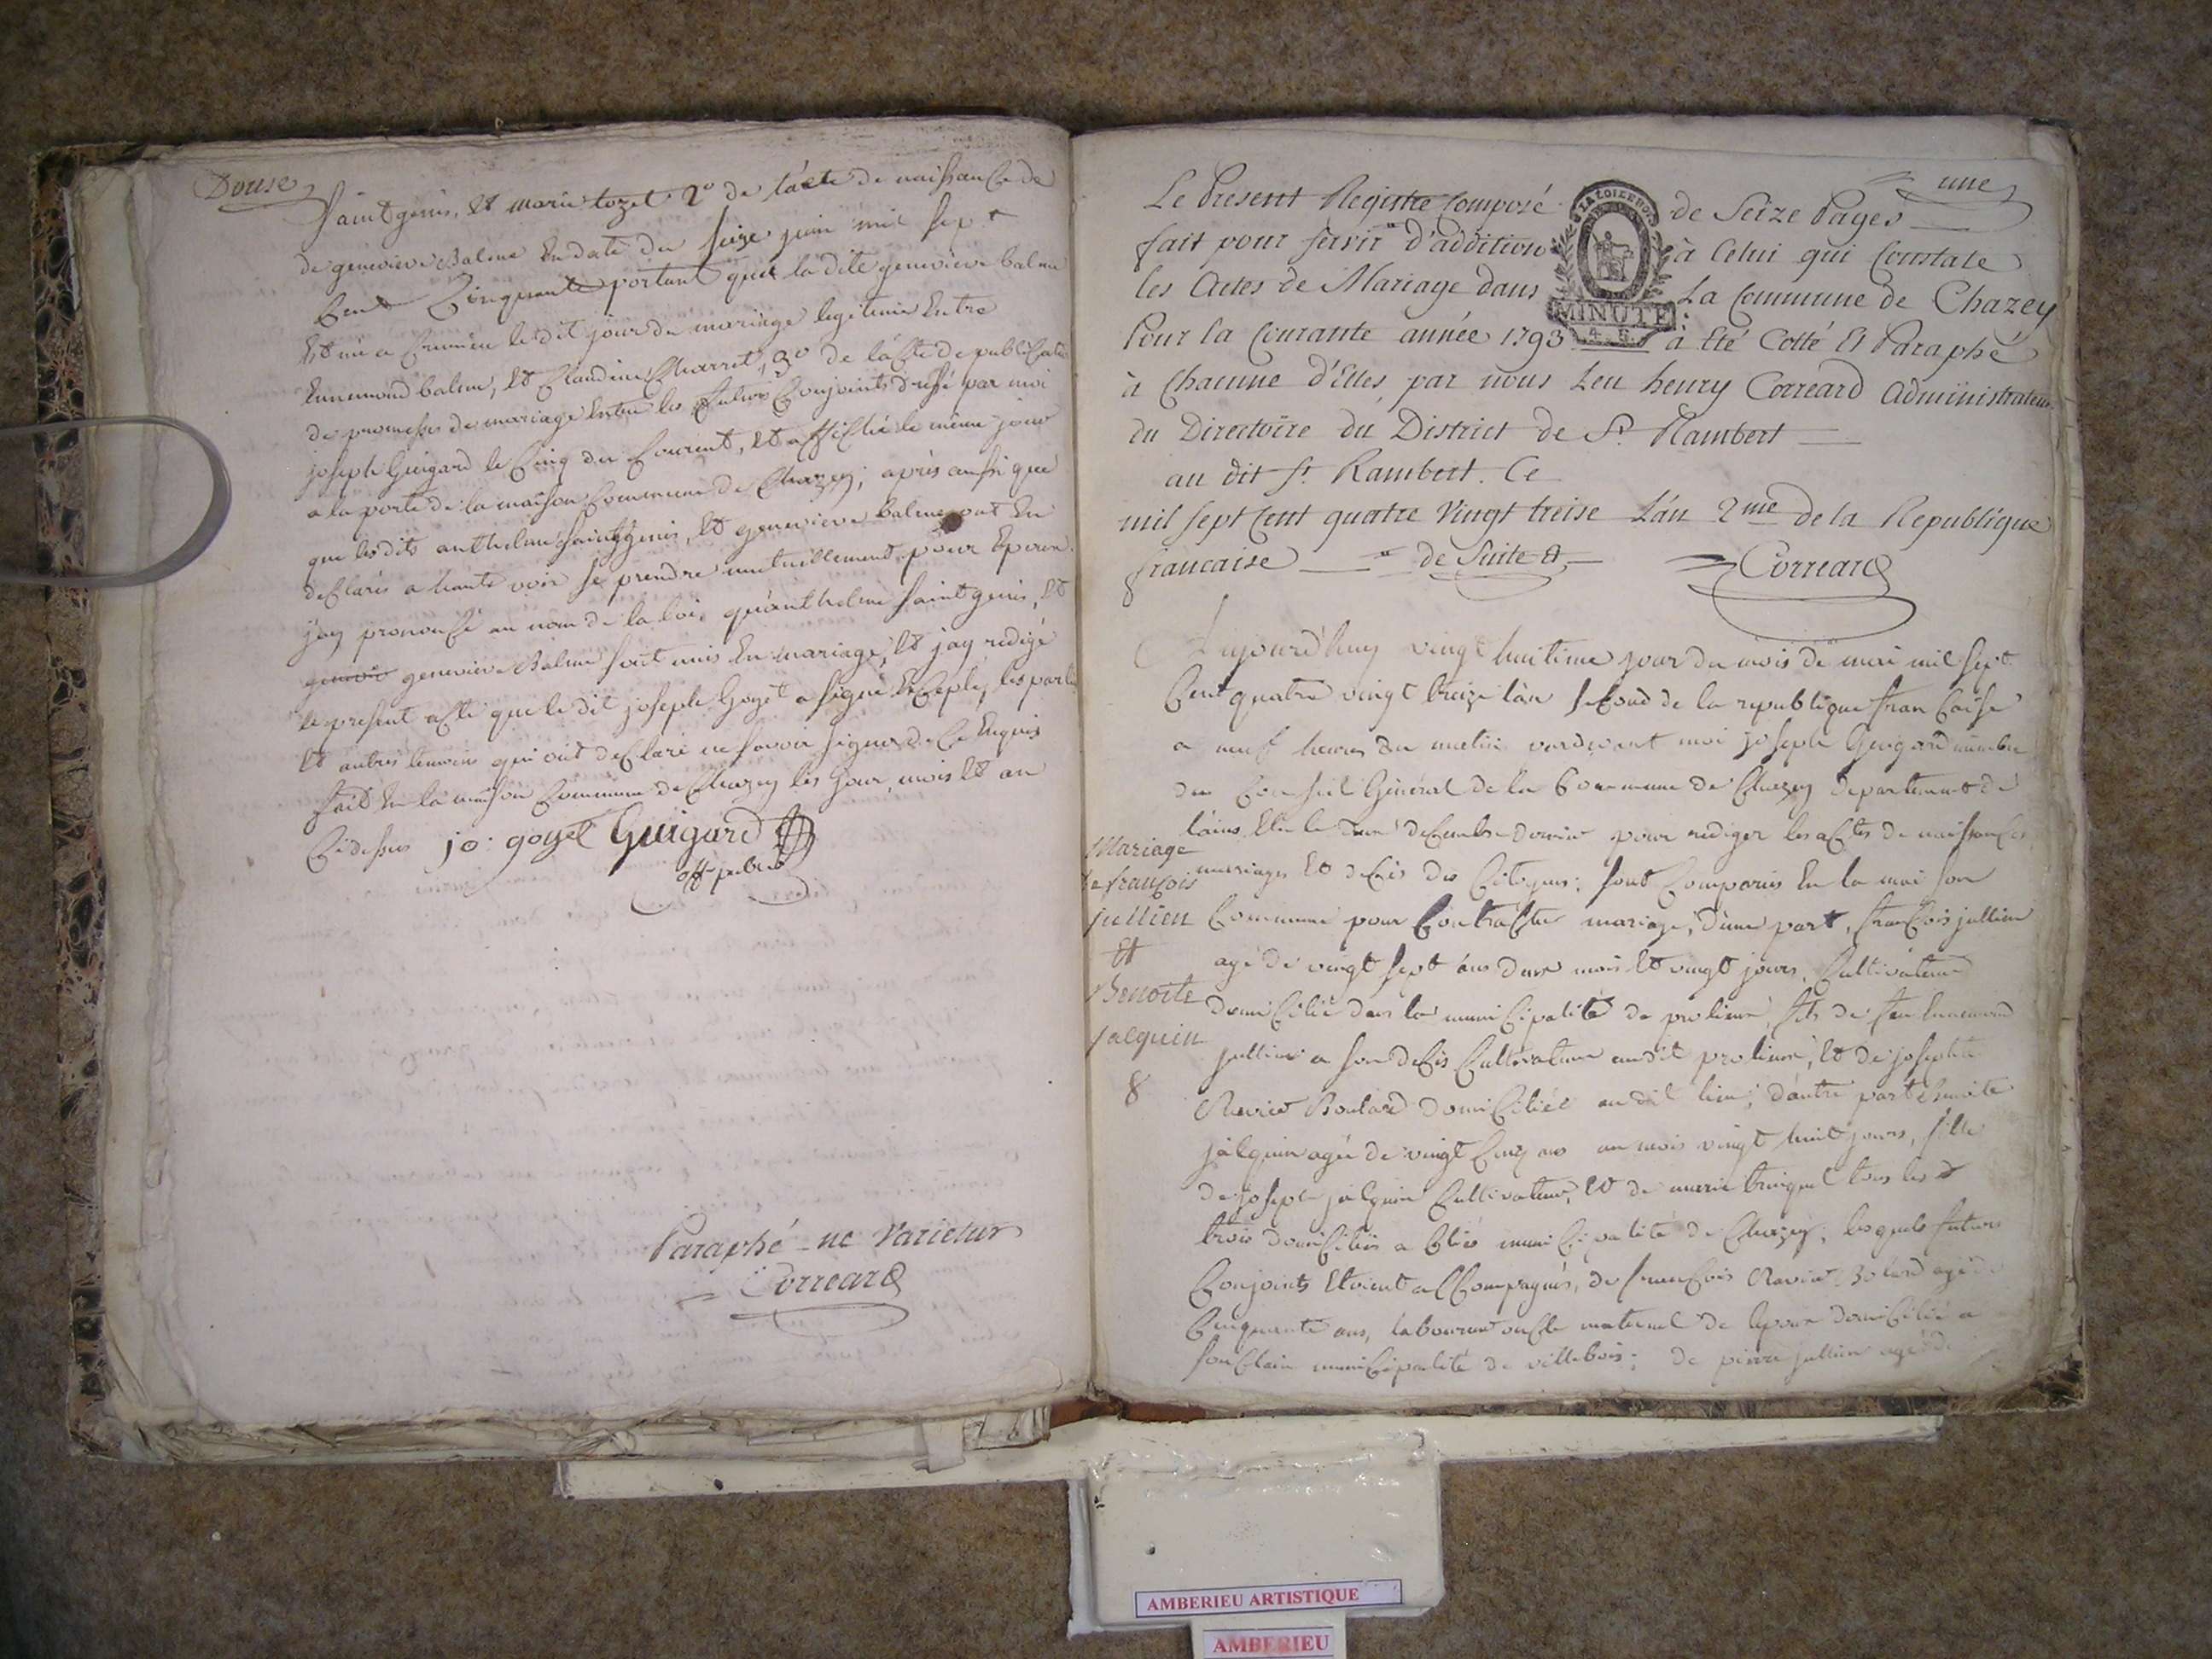 Douse
Saint genis, Et marie tozet 2° de lácte de naissance de
de genevieve Balme En date du seize juin mil sept
Cent Cinquante portant que la dite genevieve balme
Est né a Cremieu le dit jour du mariage legitime Entre
Ennemond balme, Et Claudine Charret, 3° de lácte de publicati
de promesses de mariage Entre les futurs Conjoints dressé par moi
joseph Guigard le Cinq du Courant, Et affiché le même jour
a la porte de la maison Commune de Chazey; après aussi que
que lesdits anthelme saint genis, Et genevieve balme ont En
declarés a haute voix se prendre mutuellement pour Epoux
jay prononcé au nom de la loi, qu'anthelme saint genis, Et
genevie genevieve Balme sont unis En mariage, Et jay redigé
le present acte que le dit joseph Goyet a signé Excepté, les parti
Et autres temoins qui ont declaré ne savoir signer de Ce Enquis
fait En la maison Commune de Chazey les jour, mois Et an
Cidessus jo: goyet Guigard
off. public
Paraphé ne Varietur
Correard
une
Le Present Registre Composé de Seize Pages
fait pour servir d'addition à Celui qui Constate
les Actes de Mariage dans La Commune de Chazey
Pour la Courante année 1793 a Eté Cotté Et Paraphé
à Chacune d'Elles, par nous Leu henry Correard Administrateur
du Directoire du District de St. Rambert
au dit St. Rambert. Ce
mil sept Cent quatre Vingt treise L'an 2me de la Republique
francaise de Suite Et
Correard
LA LOI LE ROI
MINUTE
Aujourd'huy vingt huitieme jour du mois de mai mil sept
Cent quatre vingt treize l'an second de la republique francaise
a neuf heures du matin pardevant moi joseph Guigard membre
du Conseil Général de la Commune de Chazey departement de
l'ains, Elu le decembre dernier pour rediger les actes de naissances
mariages Et décés des Citoyens; sont Comparus En la maison
Commune pour Contracter mariage, d'une part, francois jullien
agé de vingt sept ans deux mois Et vingt jours, Cultivateur
domicilié dans la municipalité de prolieu, fils de feu Ennemond
jullien a son décés Cultivateur audit prolieu, Et de josephte
Ravier Boulard domiciliée au dit lieu; d'autre part Benoite
jalquin agée de vingt Cinq ans un mois vingt huit jours, fille
de joseph jalquin Cultivateur, Et de marie tringuet tous les
trois domiciliés a bliés municipalité de Chazey, lesquels futurs
Conjoints Etoient accompagnés, de francois Ravier Bolard agé de
Cinquante ans, laboureur oncle maternel de l'epoux domicilié a
sonclain municipalité de villebois; de pierre jullien agé de
Mariage
de françois
jullien
Et
Benoite
jalquin
8
AMBERIEU ARTISTIQUE
AMBERIEU